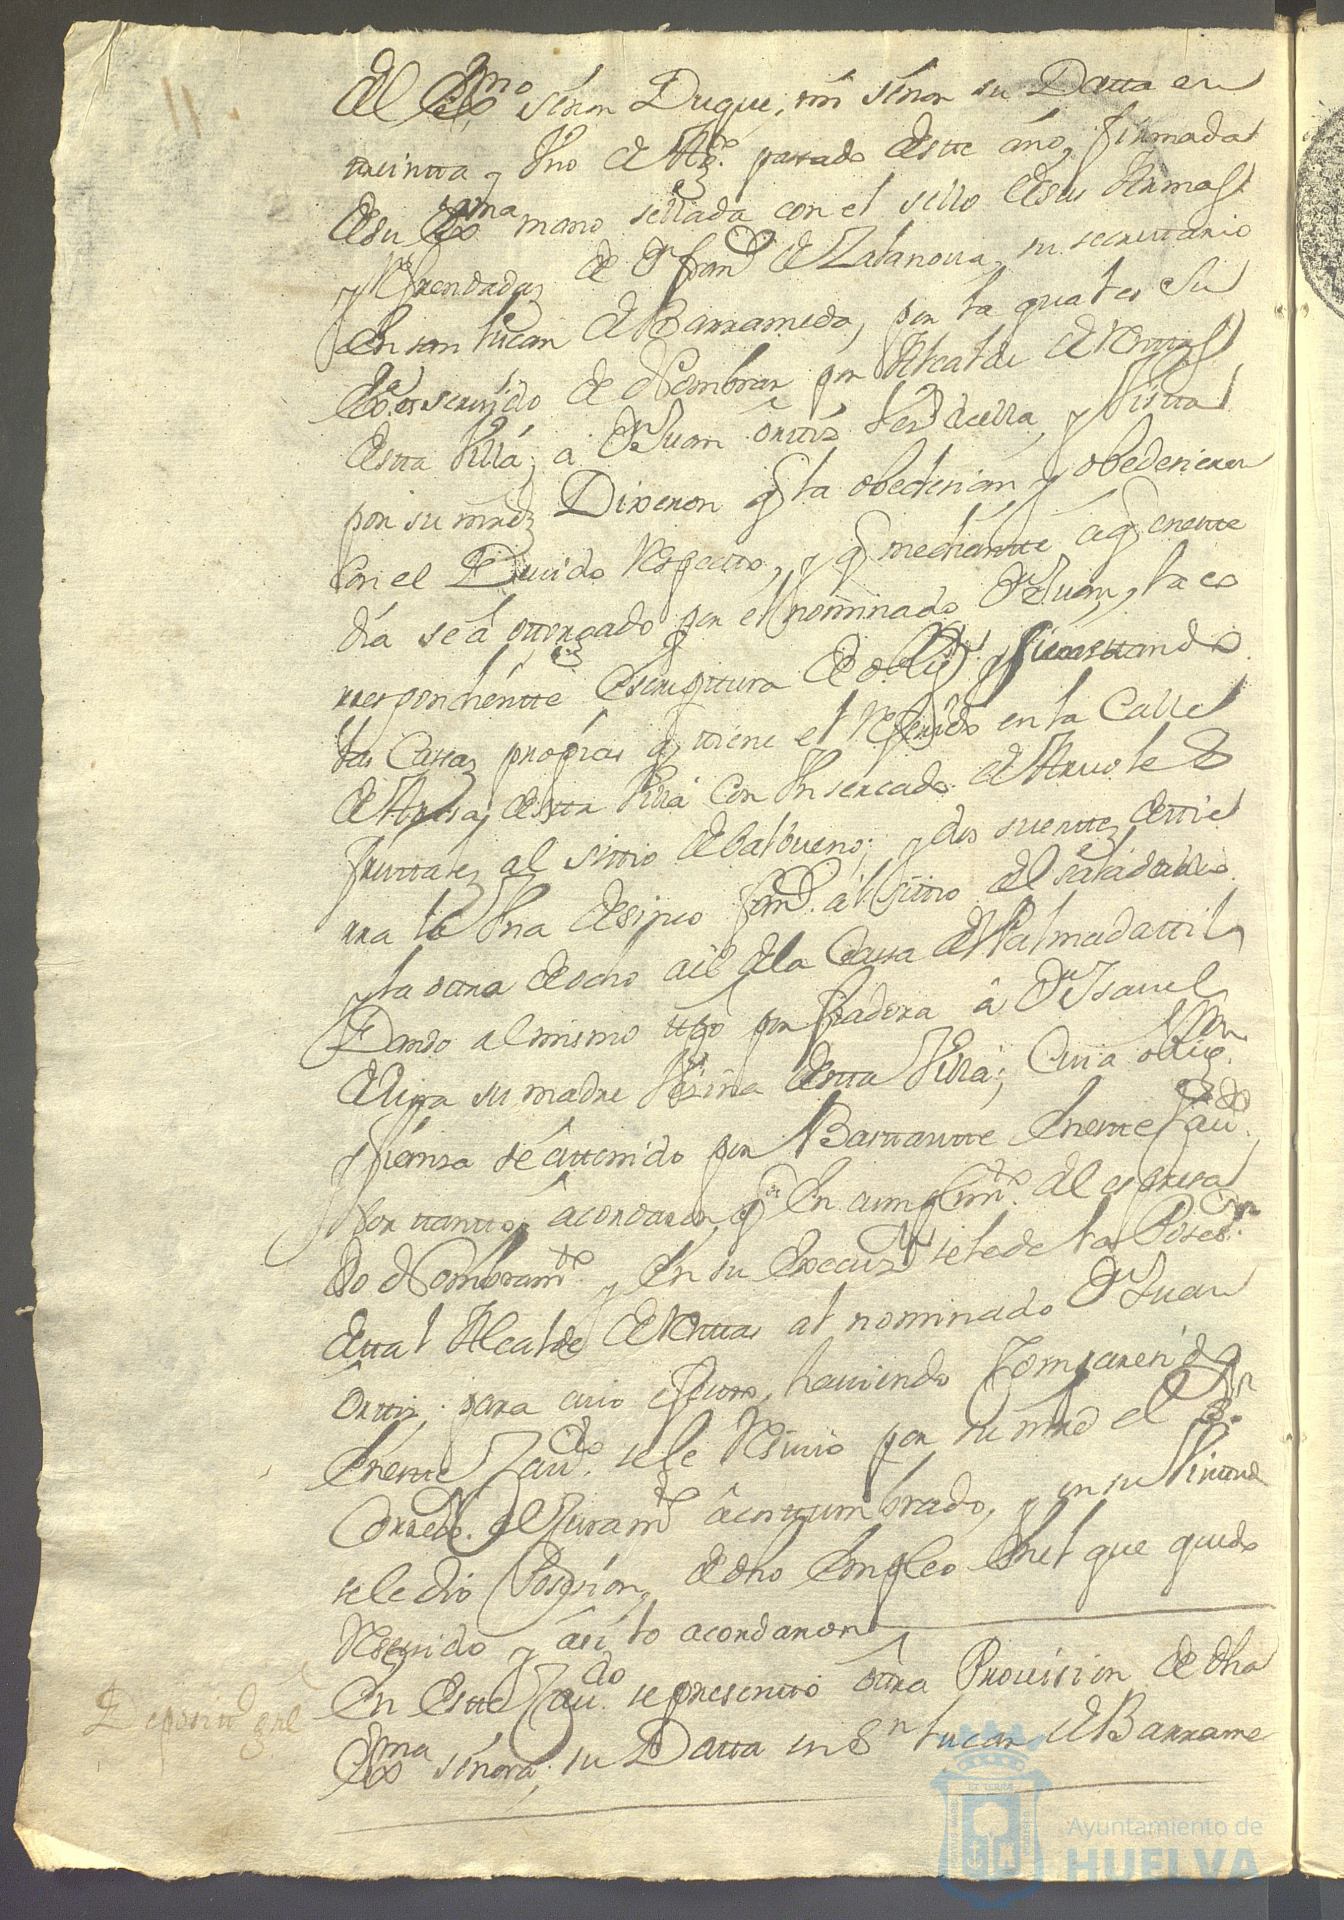 11.
del Exmo señor Duque, mi señor su Datta en
treintta y Uno de Agto. passado deste año, firmada
de su Exma mano sellada con el sello de sus Armas
y Refrendada de Dn. Franco. de Zalanova, su secretario
En san lucar de Barrameda, por la qual es Su
Exa. servido de Nombrar por Alcalde de Renttas
destta Villa, a Dn Juan Orttiz y Vistta
por su mrd. Dixeron q la obedecian y obedecieron
Con el Devido Respetto, y q mediantte a q en este
día se á ottorgado por el nominado Dn Juan, la co
rrespondientte escripttura de oblign. y
las Cassas propias q tiene el Referido en la Calle
de destta Villa Con Un sercado de Arvoles
fruttales al sittio de balbueno; y dos suerttes de tie
rra la Una de sinco al sittio del
y la otra de ocho al de la Cassa de Palma
Dando al mismo tpo por fiadora á Da. Isavel
su madre Vezina destta Villa; Cuia obligon.
y fianza se á ttenido por Basttantte En este Cavdo.
por tanto, acordaron, q En cumplimto. del espresa
do Nombramto. y En su Execuzon se le de la Poseson.
de ttal Alcalde de Renttas al nominado Dn Juan
Orttiz, para cuio efectto, haviendo Comparecido
En este Cavdo. se le Resivio por su mrd el Sr.
Corredor. el Juramto. acosttumbrado, y en su Virtud
se le dio Posesion, de dho Empleo En el que quedo
Resevido y así lo acordaron
En Este Cavdo. se presentto ottra Provision de dha
Exma señora, su Datta en Sn lucar de Barrame
Depositto. gral
Ayuntamiento de
HUELVA